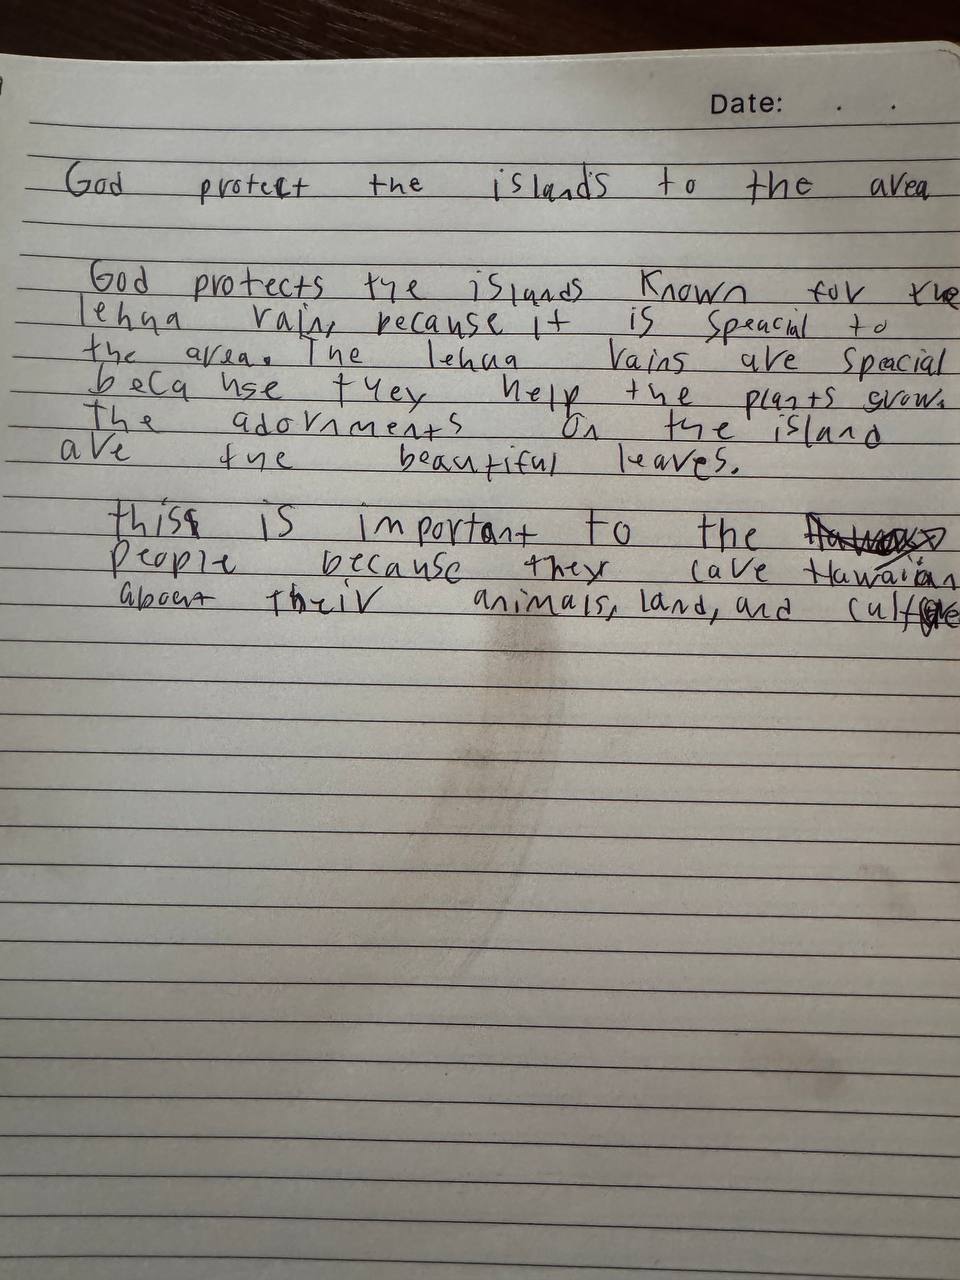 Date: . .
God protect the islands to the area
God protects the islands Known for the
lehua rain, because it is speacial to
the area. The lehua rains are spacial
because they help the plants grow.
The adornments on the island
are the beautiful leaves.
this is important to the
people because they care Hawaiian
about their animals, land, and culture